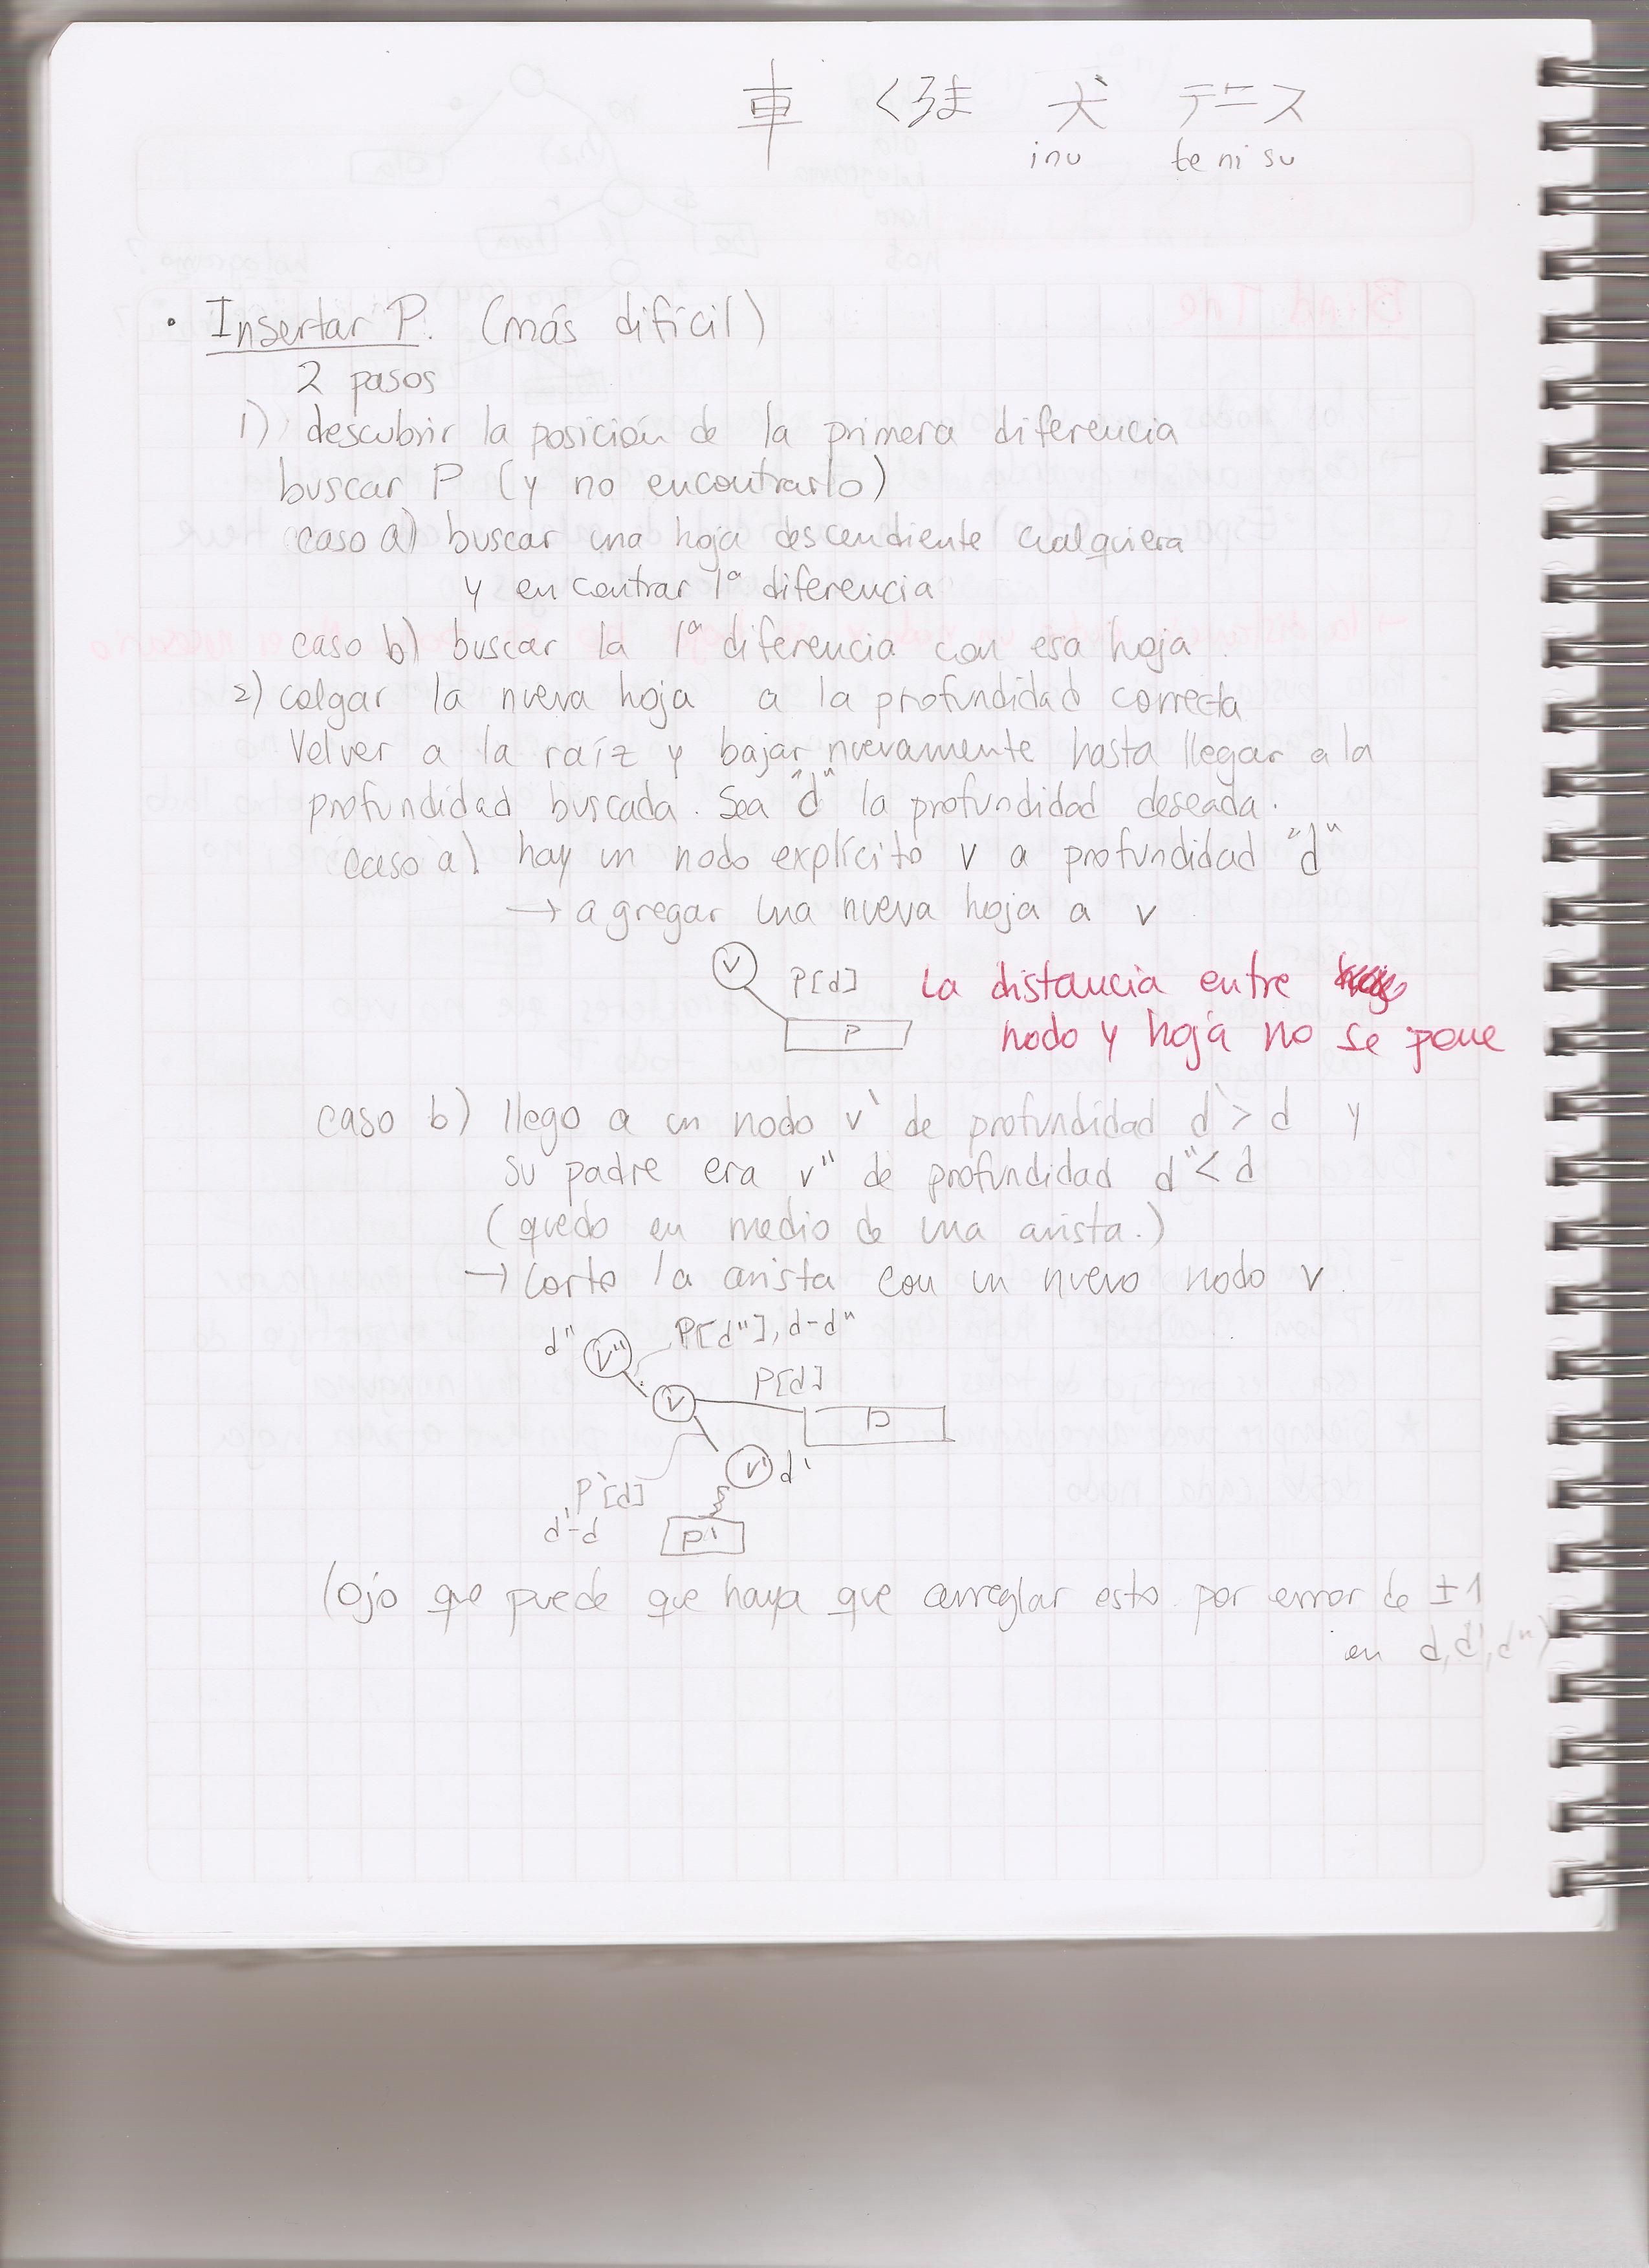 車 くるま 犬 テニス
inu te ni su
• Insertar P. (más difícil)
2 pasos
1) descubrir la posición de la primera diferencia
buscar P (y no encontrarlo)
caso a) buscar una hoja descendiente cualquiera
y encontrar 1ª diferencia
caso b) buscar la 1ª diferencia con esa hoja.
2) colgar la nueva hoja a la profundidad correcta
Volver a la raíz y bajar nuevamente hasta llegar a la
profundidad buscada. Sea "d" la profundidad deseada.
caso a) hay un nodo explícito v a profundidad "d"
→ agregar una nueva hoja a v
v P[d] La distancia entre
P nodo y hoja no se pone
caso b) llego a un nodo v' de profundidad d' > d y
su padre era v'' de profundidad d'' < d
(quedo en medio de una arista.)
→ corto la arista con un nuevo nodo v.
d'' v'' P[d''], d-d''
v P[d] P
v' d'
P'[d],
d'-d P'
(ojo que puede que haya que arreglar esto por error de ±1
en d, d', d'')